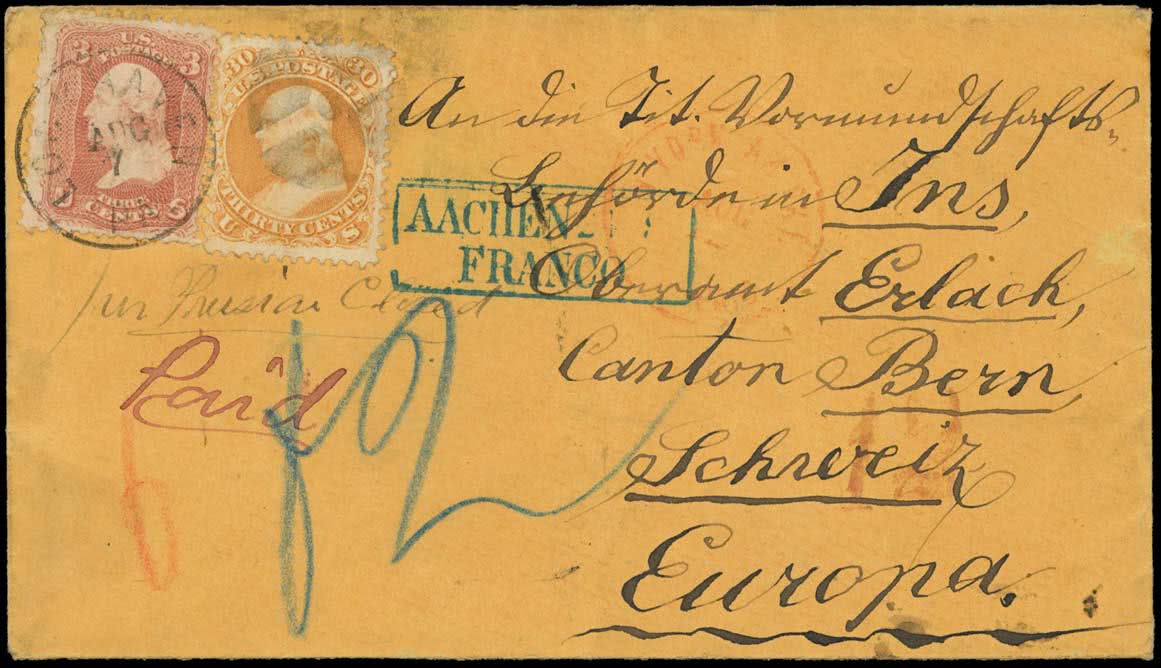 3 U.S. 3
POSTAGE
THREE
CENTS
AUG
7
30 30
U.S. POSTAGE
THIRTY CENTS
U S
An die Tit. Vormundschafts-
Behörde in Ins,
AACHEN
FRANCO
Oberamt Erlach,
per Prussian Closed
Paid
Canton Bern
Schweiz
Europa.
12
f2